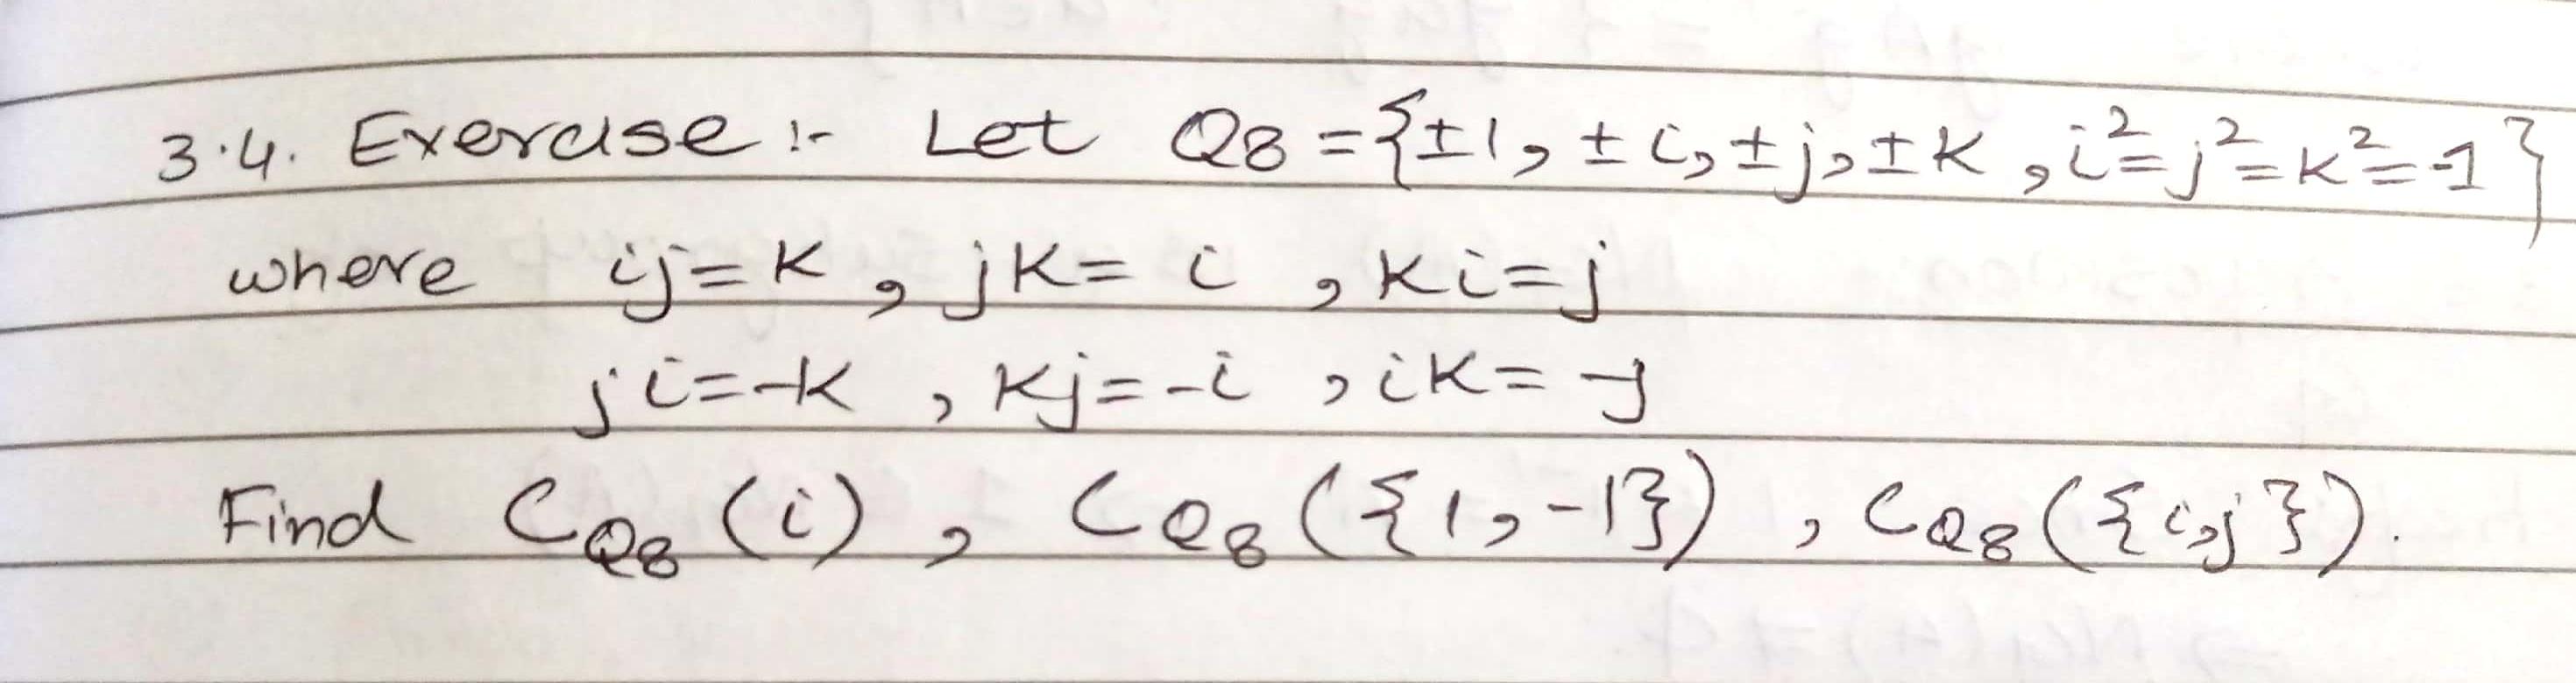 3.4. Exercise :- Let Q8 = {±1, ±i, ±j, ±k, i²=j²=k²=-1}
where ij=k, jk= i, ki=j
ji=-k, kj=-i, ik= -j
Find C_Q8 (i), C_Q8 ({1,-1}), C_Q8 ({i,j}).